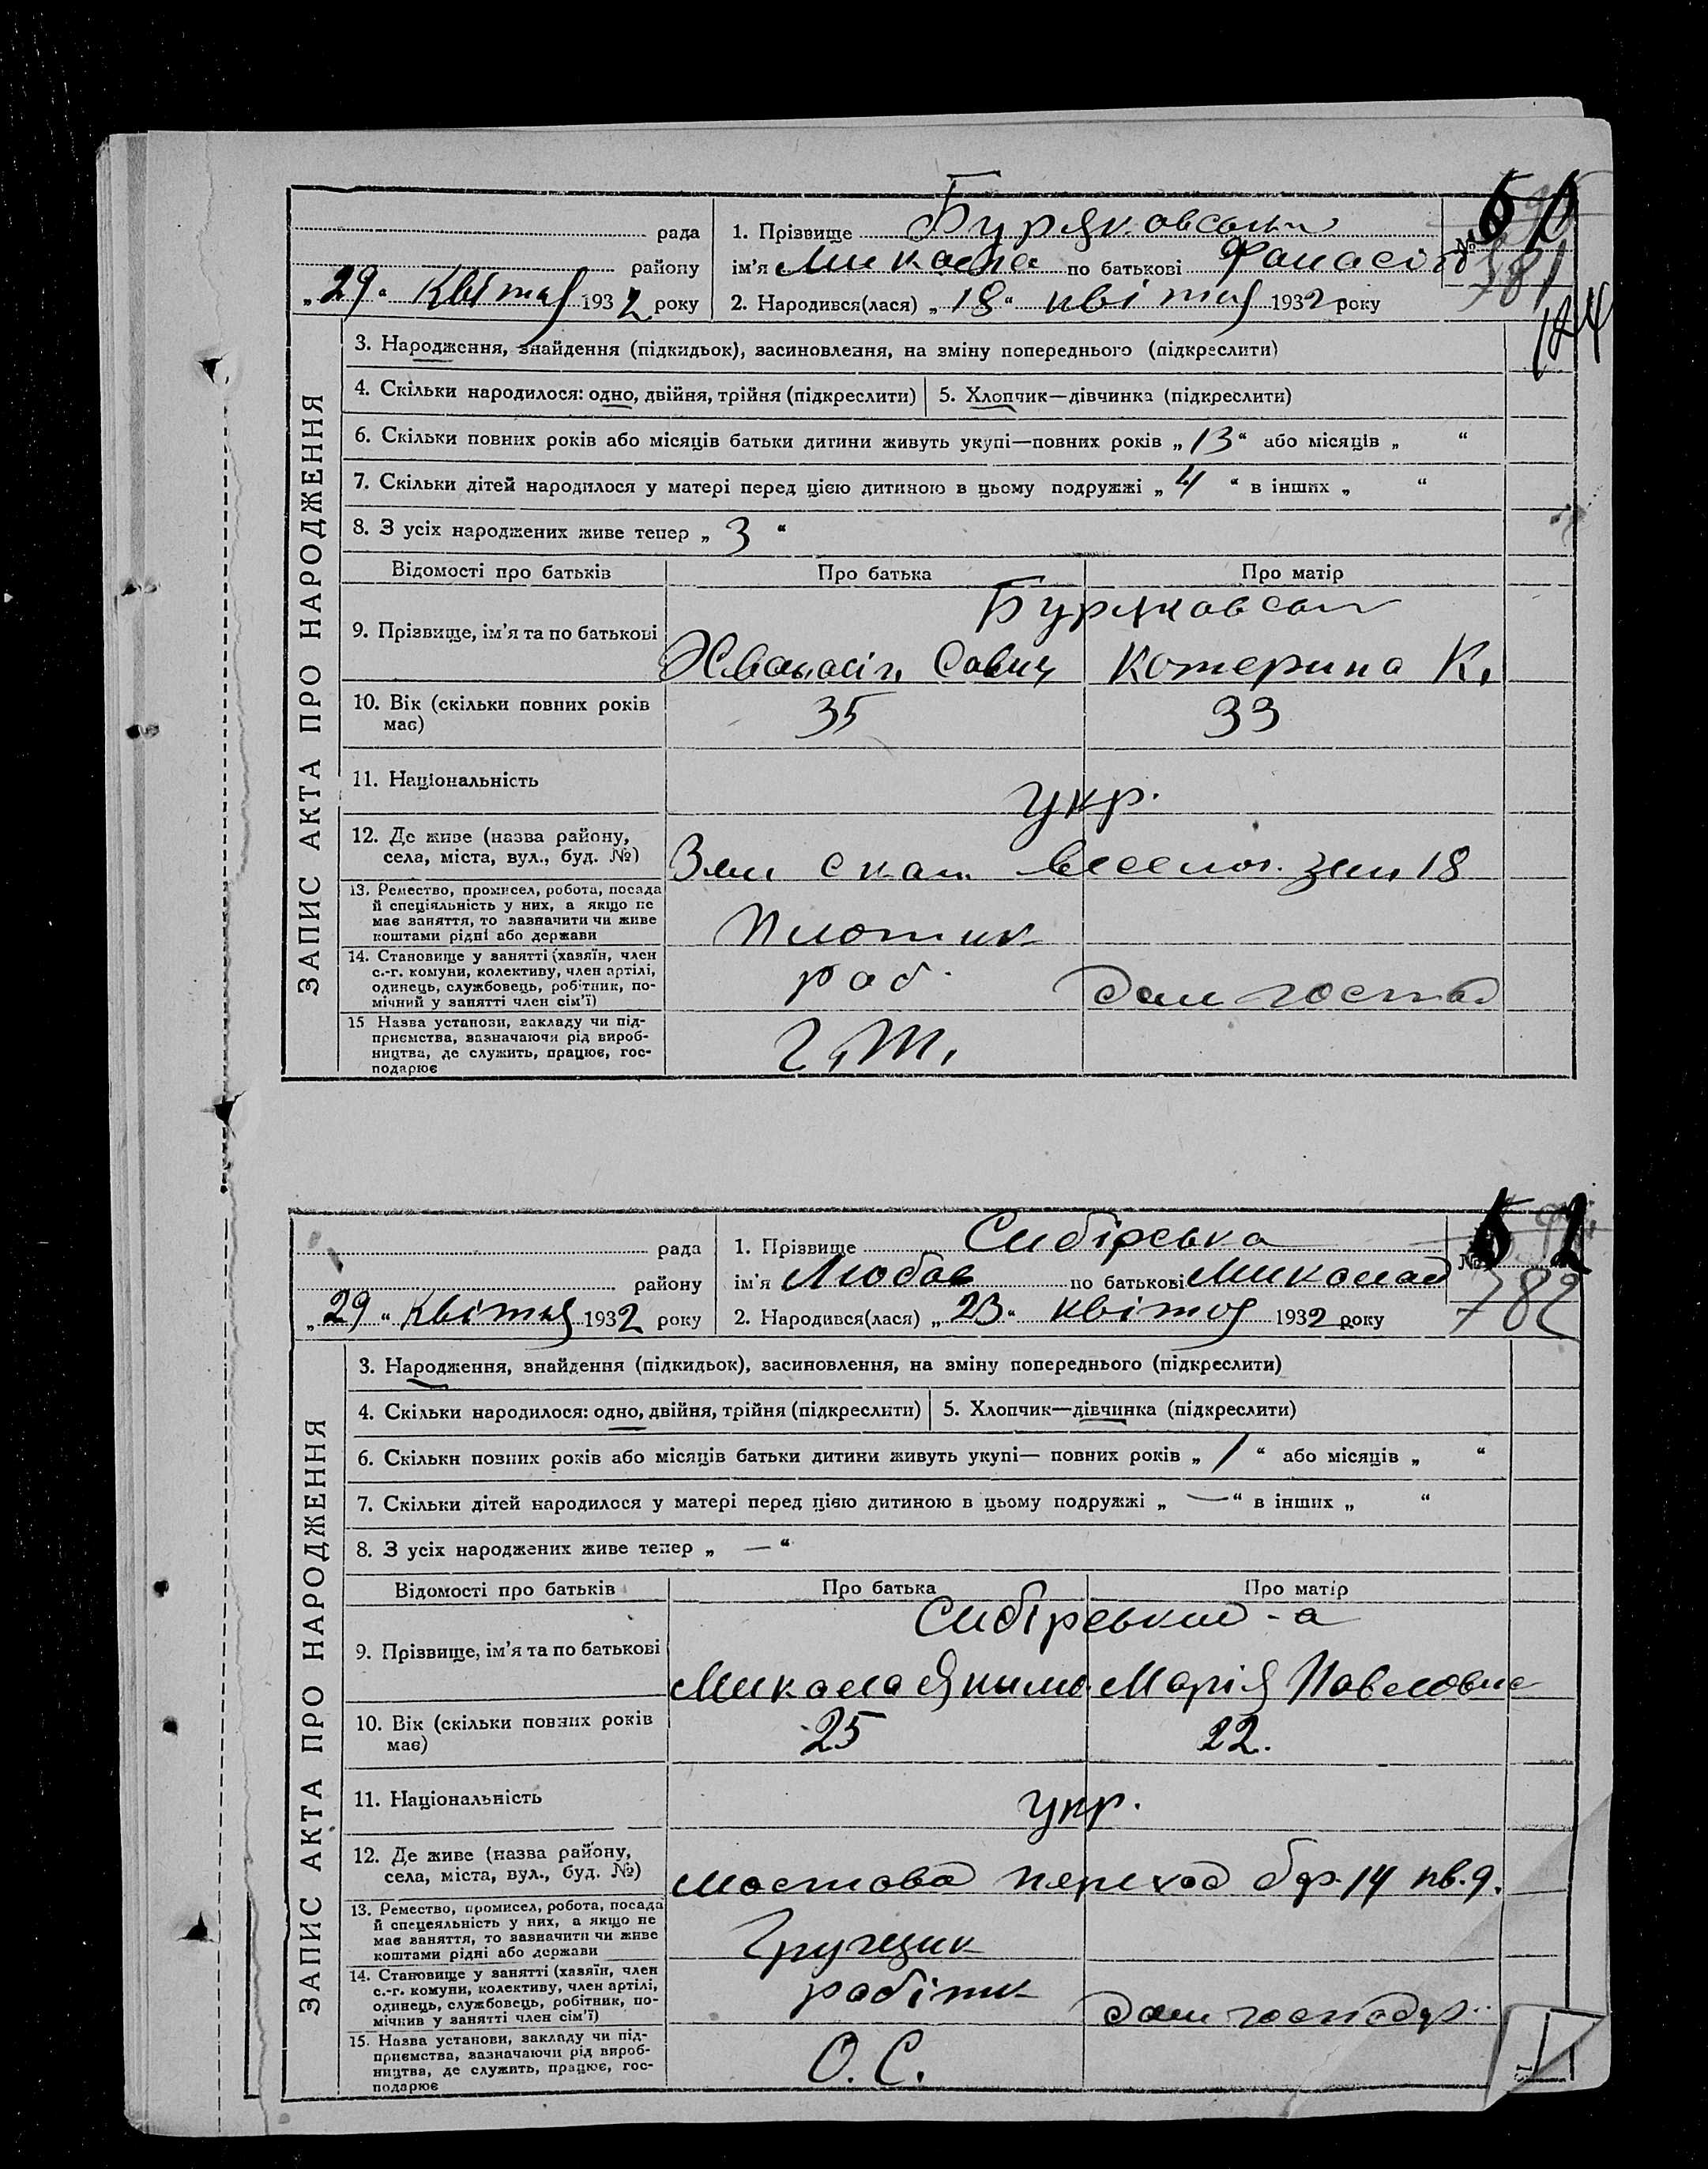 рада
району
„29“ Квітня 1932 року
1. Прізвище Буряковський
ім’я Микола по батькові Фанасів
2. Народився(лася) „18“ квітня 1932 року
№
781
ЗАПИС АКТА ПРО НАРОДЖЕННЯ
3. Народження, знайдення (підкидьок), засиновлення, на зміну попереднього (підкреслити)
4. Скільки народилося: одно, двійня, трійня (підкреслити) 5. Хлопчик—дівчинка (підкреслити)
6. Скільки повних років або місяців батьки дитини живуть укупі—повних років „13“ або місяців „ “
7. Скільки дітей народилося у матері перед цією дитиною в цьому подружжі „4“ в інших „ “
8. З усіх народжених живе тепер „3“
Відомості про батьків Про батька Про матір
Буряковськ
9. Прізвище, ім’я та по батькові
Савич Катерина К.
10. Вік (скільки повних років має) 35 33
11. Національність
укр.
12. Де живе (назва району,
села, міста, вул., буд. №) 18
13. Ремество, промисел, робота, посада
й спеціяльність у них, а якщо не
має заняття, то зазначити чи живе
коштами рідні або держави
Плотник
14. Становище у занятті (хазяїн, член
с.-г. комуни, колективу, член артілі,
одинець, службовець, робітник, по-
мічний у занятті член сім’ї)
раб дом господ
15 Назва установи, закладу чи під-
приємства, зазначаючи рід вироб-
ництва, де служить, працює, гос-
подарює
рада
району
„29“ Квітня 1932 року
1. Прізвище Сибірська
ім’я Любов по батькові Миколаев
2. Народився(лася) „23“ квітня 1932 року
№
782
ЗАПИС АКТА ПРО НАРОДЖЕННЯ
3. Народження, знайдення (підкидьок), засиновлення, на зміну попереднього (підкреслити)
4. Скільки народилося: одно, двійня, трійня (підкреслити) 5. Хлопчик—дівчинка (підкреслити)
6. Скільки повних років або місяців батьки дитини живуть укупі— повних років „1“ або місяців „ “
7. Скільки дітей народилося у матері перед цією дитиною в цьому подружжі „—“ в інших „ “
8. З усіх народжених живе тепер „ — “
Відомості про батьків Про батька Про матір
Сибірський - а
9. Прізвище, ім’я та по батькові
Микола Якимо Марія Павловна
10. Вік (скільки повних років має) 25 22.
11. Національність
укр.
12. Де живе (назва району,
села, міста, вул., буд. №) Мостова переход бар. 14 кв. 9.
13. Ремество, промисел, робота, посада
й спецеяльність у них, а якщо не
має заняття, то зазначити чи живе
коштами рідні або держави
Грущик
14. Становище у занятті (хазяїн, член
с.-г. комуни, колективу, член артілі,
одинець, службовець, робітник, по-
мічник у занятті член сім’ї)
робітник дом господар
15. Назва установи, закладу чи під-
приємства, зазначаючи рід вироб-
ництва, де служить, працює, гос-
подарює
О. С.